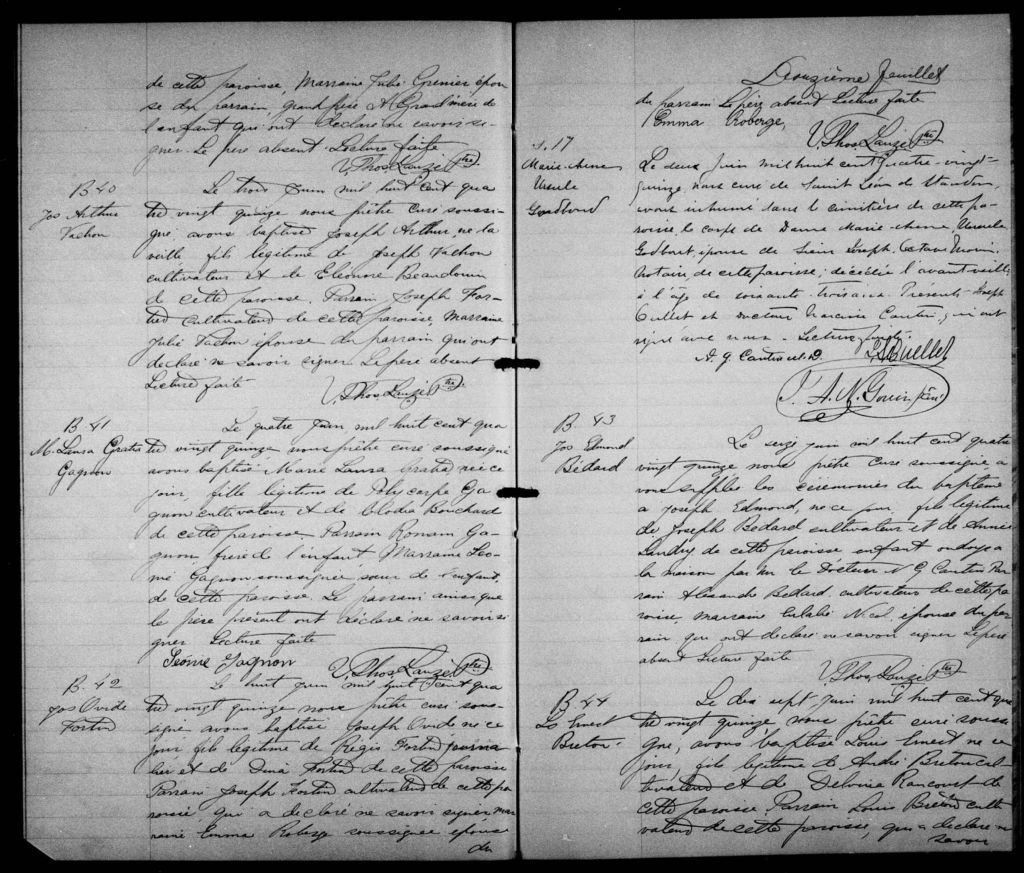 de cette paroisse, Marraine Julie Grenier épou
se du parrain, grand père & Grand'mère de
l'enfant qui ont déclaré ne savoir si-
gner. Le père absent. Lecture faite
V. Thos. Lauzé Ptre
B 40
Jos Arthur
Vachon
Le trois Juin mil huit cent qua
tre vingt quinze nous prêtre curé soussi-
gné, avons baptisé Joseph Arthur né la
veille fils légitime de Joseph Vachon
cultivateur et de Eléonore Beaudouin
de cette paroisse. Parrain Joseph For-
tin Cultivateur de cette paroisse, Marraine
Julie Vachon épouse du parrain qui ont
déclaré ne savoir signer Le père absent
Lecture faite
V. Thos Lauzé Ptre
B. 41
M. Laura Gratia
Gagnon
Le quatre Juin, mil huit cent qua
tre vingt quinze nous prêtre curé soussigné
avons baptisé Marie Laura Gratia née ce
jour, fille légitime de Polycarpe Ga-
gnon cultivateur et de Clodia Bouchard
de cette paroisse Parrain Romain Ga-
gnon, frère de l'enfant, Marraine Léo-
nie Gagnon soussignée sœur de l'enfant,
de cette paroisse. Le parrain ainsi que
le père présent ont déclaré ne savoir si
gner Lecture faite
Léonie Gagnon
V. Thos Lauzé Ptre
B. 42
Jos Ovide
Fortin
Le huit juin mil huit cent qua
tre vingt quinze nous prêtre curé sous-
signé avons baptisé Joseph Ovide né ce
jour fils légitime de Régis Fortin journa
lier et de Fortin de cette paroisse
Parrain Joseph Fortin cultivateur de cette pa
roisse, qui a déclaré ne savoir signer, mar
raine Emma Roberge soussignée épouse
du
Douzième feuillet
du parrain Le père absent Lecture faite
Emma Roberge,
V. Thos. Lauzé Ptre
S. 17
Marie-Anne
Ursule
Godbout
Le deux Juin mil huit cent quatre-vingt-
quinze, nous curé de Saint Léon de Standon,
avons inhumé dans le cimetière de cette pa-
roisse le corps de Dame Marie-Anne, Ursule
Godbout, épouse de Sieur Joseph Octave Morin,
Notaire de cette paroisse; décédée l'avant-veille
à l'âge de soixante-trois ans. Présents- Joseph
Ouellet et Docteur Narcisse Cantin, qui ont
signé avec nous - Lecture faite
N. G. Cantin M.D.
J. Ouellet
J. A. N. Gouin ptre
B. 43
Jos Edmond
Bédard
Le seize juin mil huit cent quatre
vingt quinze nous prêtre curé soussigné a
vons suppléé les cérémonies du baptême
à Joseph Edmond, né ce jour, fils légitime
de Joseph Bédard cultivateur et de Annie
Landry de cette paroisse enfant ondoyé à
la maison par Mr le Docteur N G Cantin Par
rain Alexandre Bédard, cultivateur de cette pa
roisse, marraine Eulalie Nicol, épouse du par
rain qui ont déclaré ne savoir signer Le père
absent Lecture faite
V. Thos Lauzé Ptre
B. 44
Ls Ernest
Breton.
Le dix sept Juin mil huit cent qua
tre vingt quinze nous prêtre curé soussi
gné, avons baptisé Louis Ernest né ce
jour, fils légitime de André Breton cul-
tivateur et de Delvina Rancourt de
cette paroisse Parrain Louis Breton culti
vateur de cette paroisse, qui a déclaré ne
savoir